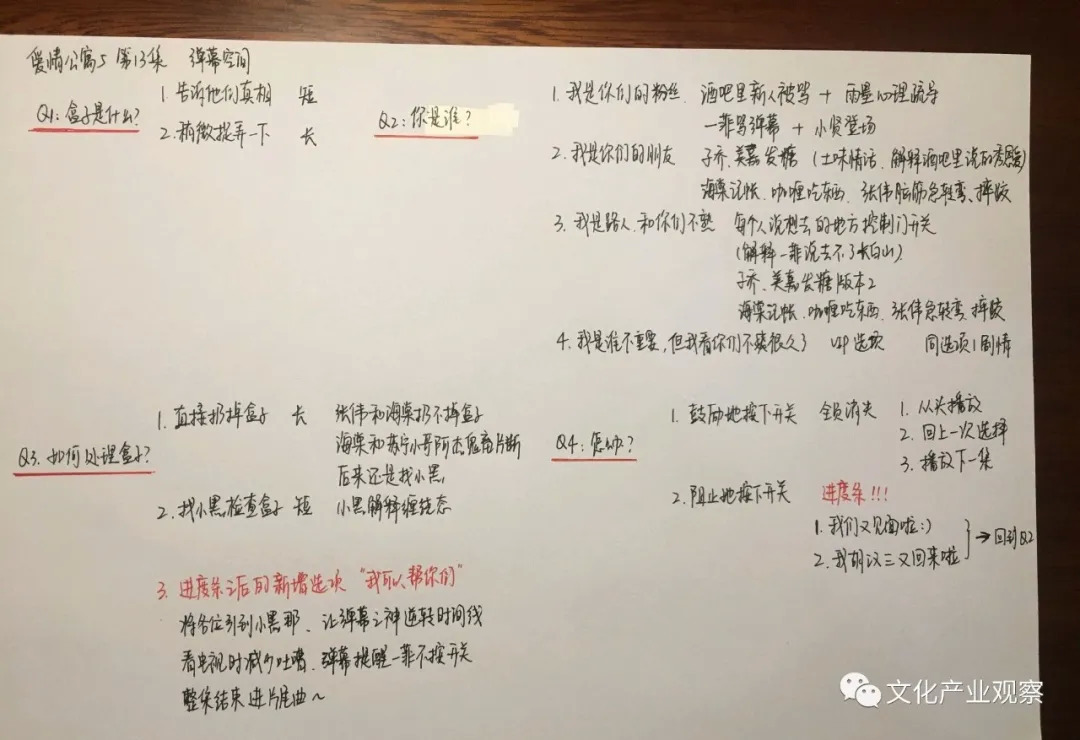 爱情公寓5 第13集 弹幕空间
Q1: 盒子是什么?
1. 告诉他们真相 短
2. 稍微捉弄一下 长
Q2: 你是谁?
1. 我是你们的粉丝 酒吧里新人被骂 + 雨墨心理疏导
一菲骂弹幕 + 小贤登场
2. 我是你们的朋友 子乔、美嘉发糖 (土味情话、解释酒吧里说的秀恩爱)
海棠记帐、咖喱吃东西、张伟脑筋急转弯、摔跤
3. 我是路人、和你们不熟 每个人说想去的地方控制门开关
(解释一菲说去不了长白山)
子乔、美嘉发糖版本2
海棠记帐、咖喱吃东西、张伟急转弯、摔跤
4. 我是谁不重要,但我看你们不爽很久了 VIP选项 同选项1剧情
Q3. 如何处理盒子?
1. 直接扔掉盒子 长 张伟和海棠扔不掉盒子
海棠和苏宁小哥阿杰鬼畜片断
后来还是找小黑
2. 找小黑检查盒子 短 小黑解释缠绕态
3. 进度条之后的新增选项 “我可以帮你们”
将各位引到小黑那、让弹幕之神逆转时间线
看电视时减少吐槽、弹幕提醒一菲不按开关
整集结束 进片尾曲~
Q4: 怎么办?
1. 鼓励她按下开关 全员消失
1. 从头播放
2. 回上一次选择
3. 播放下一集
2. 阻止她按下开关 进度条!!!
1. 我们又见面啦:)
2. 我胡汉三又回来啦
→ 回到Q2
文化产业观察